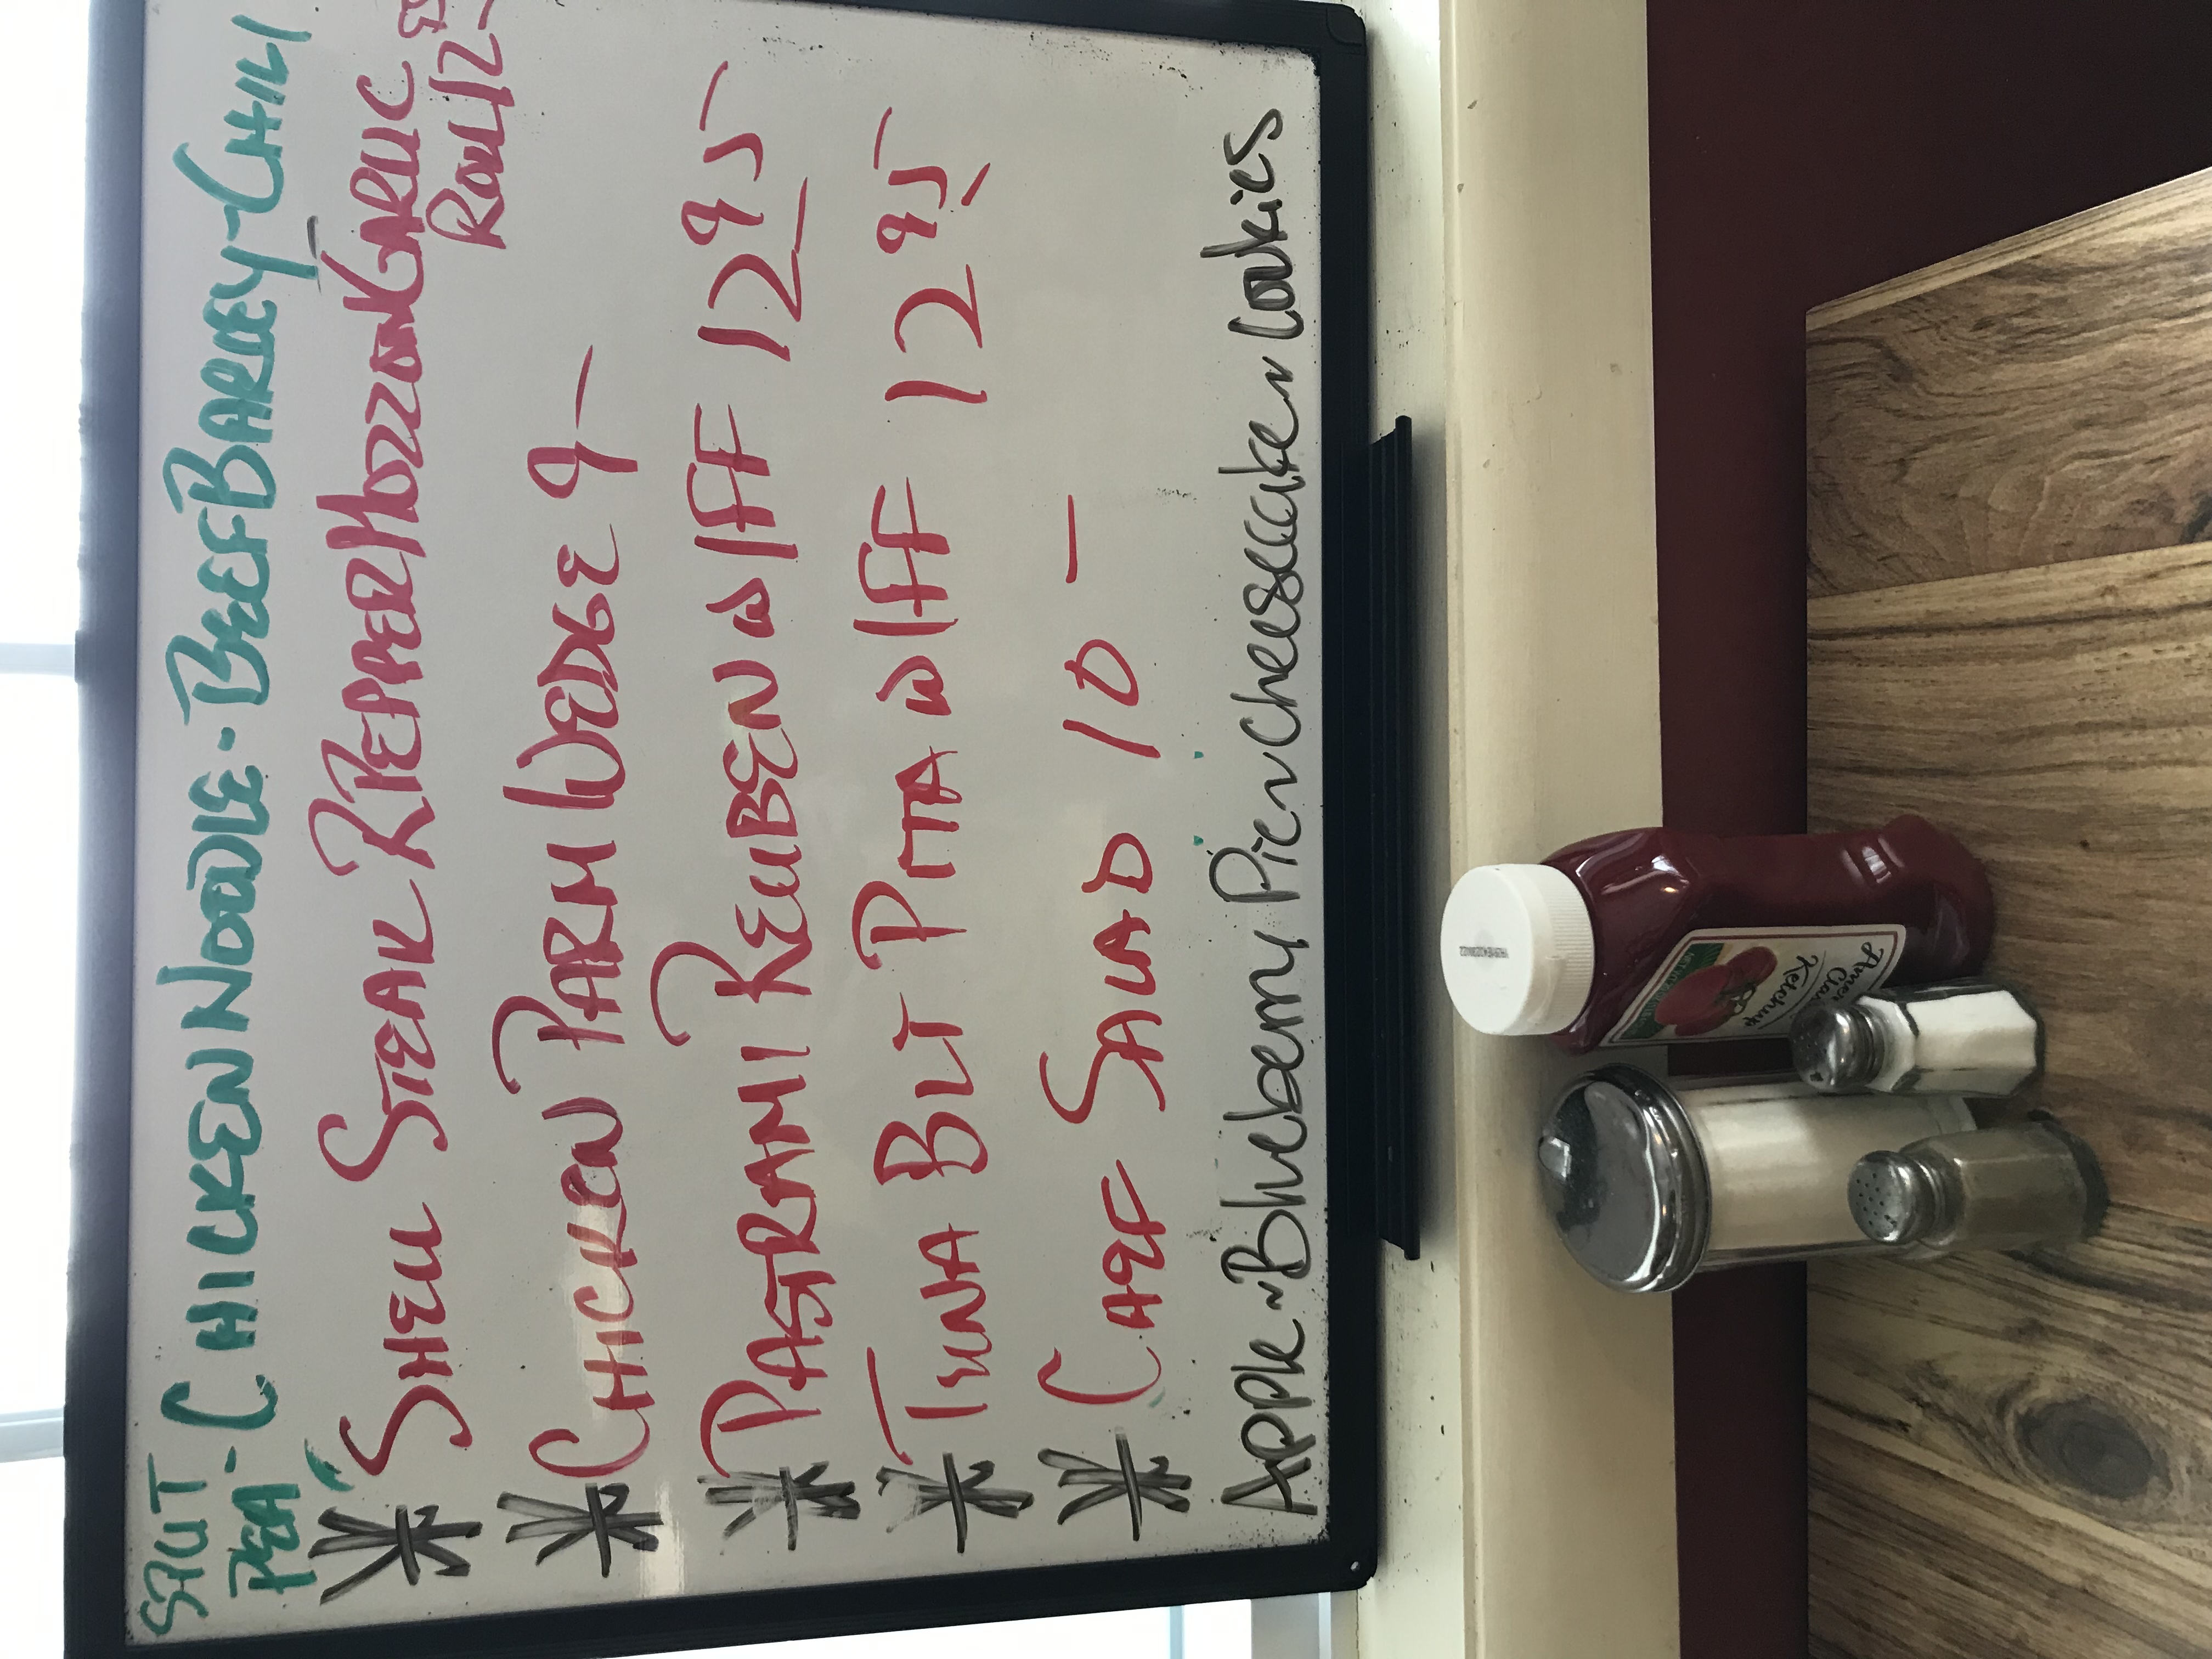 SPLIT
PEA - CHICKEN NOODLE - BEEF BARLEY - CHILI
* SHELL STEAK PEPPER/MOZZ ON GARLIC
ROLL 12
* CHICKEN PARM WEDGE 9 —
* PASTRAMI REUBEN W/FF 12 95
* TUNA BLT PITA W/FF 12 95
* CAEF SALAD 10 —
Apple ~ Blueberry Pie ~ Cheesecake ~ Cookies
Ketchup